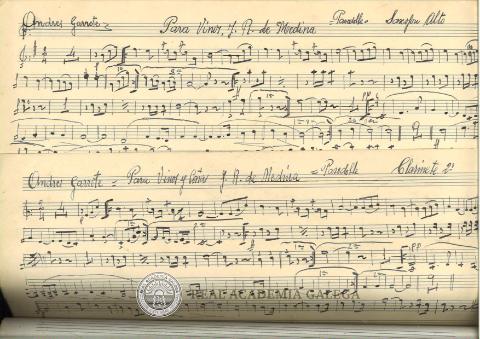 Andres Garrote = Para Vinos, J. R. de Medina = Pasodoble = Saxofon Alto
Andres Garrote = Para Vinos y Cañas J. R. de Medina = Pasodoble Clarinete 2º
REAL ACADEMIA GALEGA